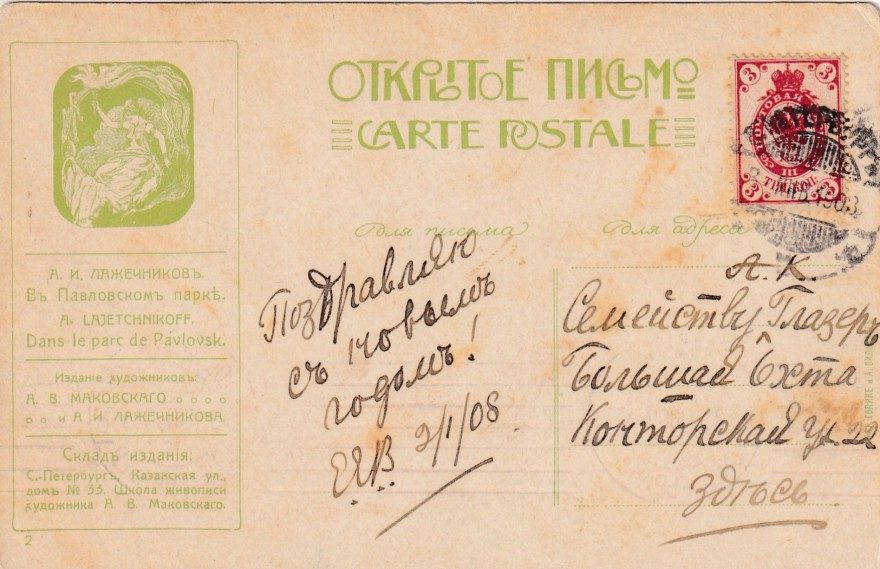 ОТКРЫТОЕ ПИСЬМО
CARTE POSTALE
Для письма
Для адреса
А. И. ЛАЖЕЧНИКОВЪ.
Въ Павловскомъ паркѣ.
A. LAJETCHNIKOFF.
Dans le parc de Pavlovsk.
Издание художниковъ:
А. В. МАКОВСКАГО
и А. И. ЛАЖЕЧНИКОВА.
Складъ изданія:
С.-Петербургъ, Казанская ул.,
домъ № 33. Школа живописи
художника А. В. Маковскаго.
2
Поздравляю
съ новымъ
годомъ!
2/I/08
3 3
ПОЧТОВАЯ
III
3 3
1908
А. К.
Семейству Глазеръ
Большая Охта
Конторская ул. 22
Здѣсь